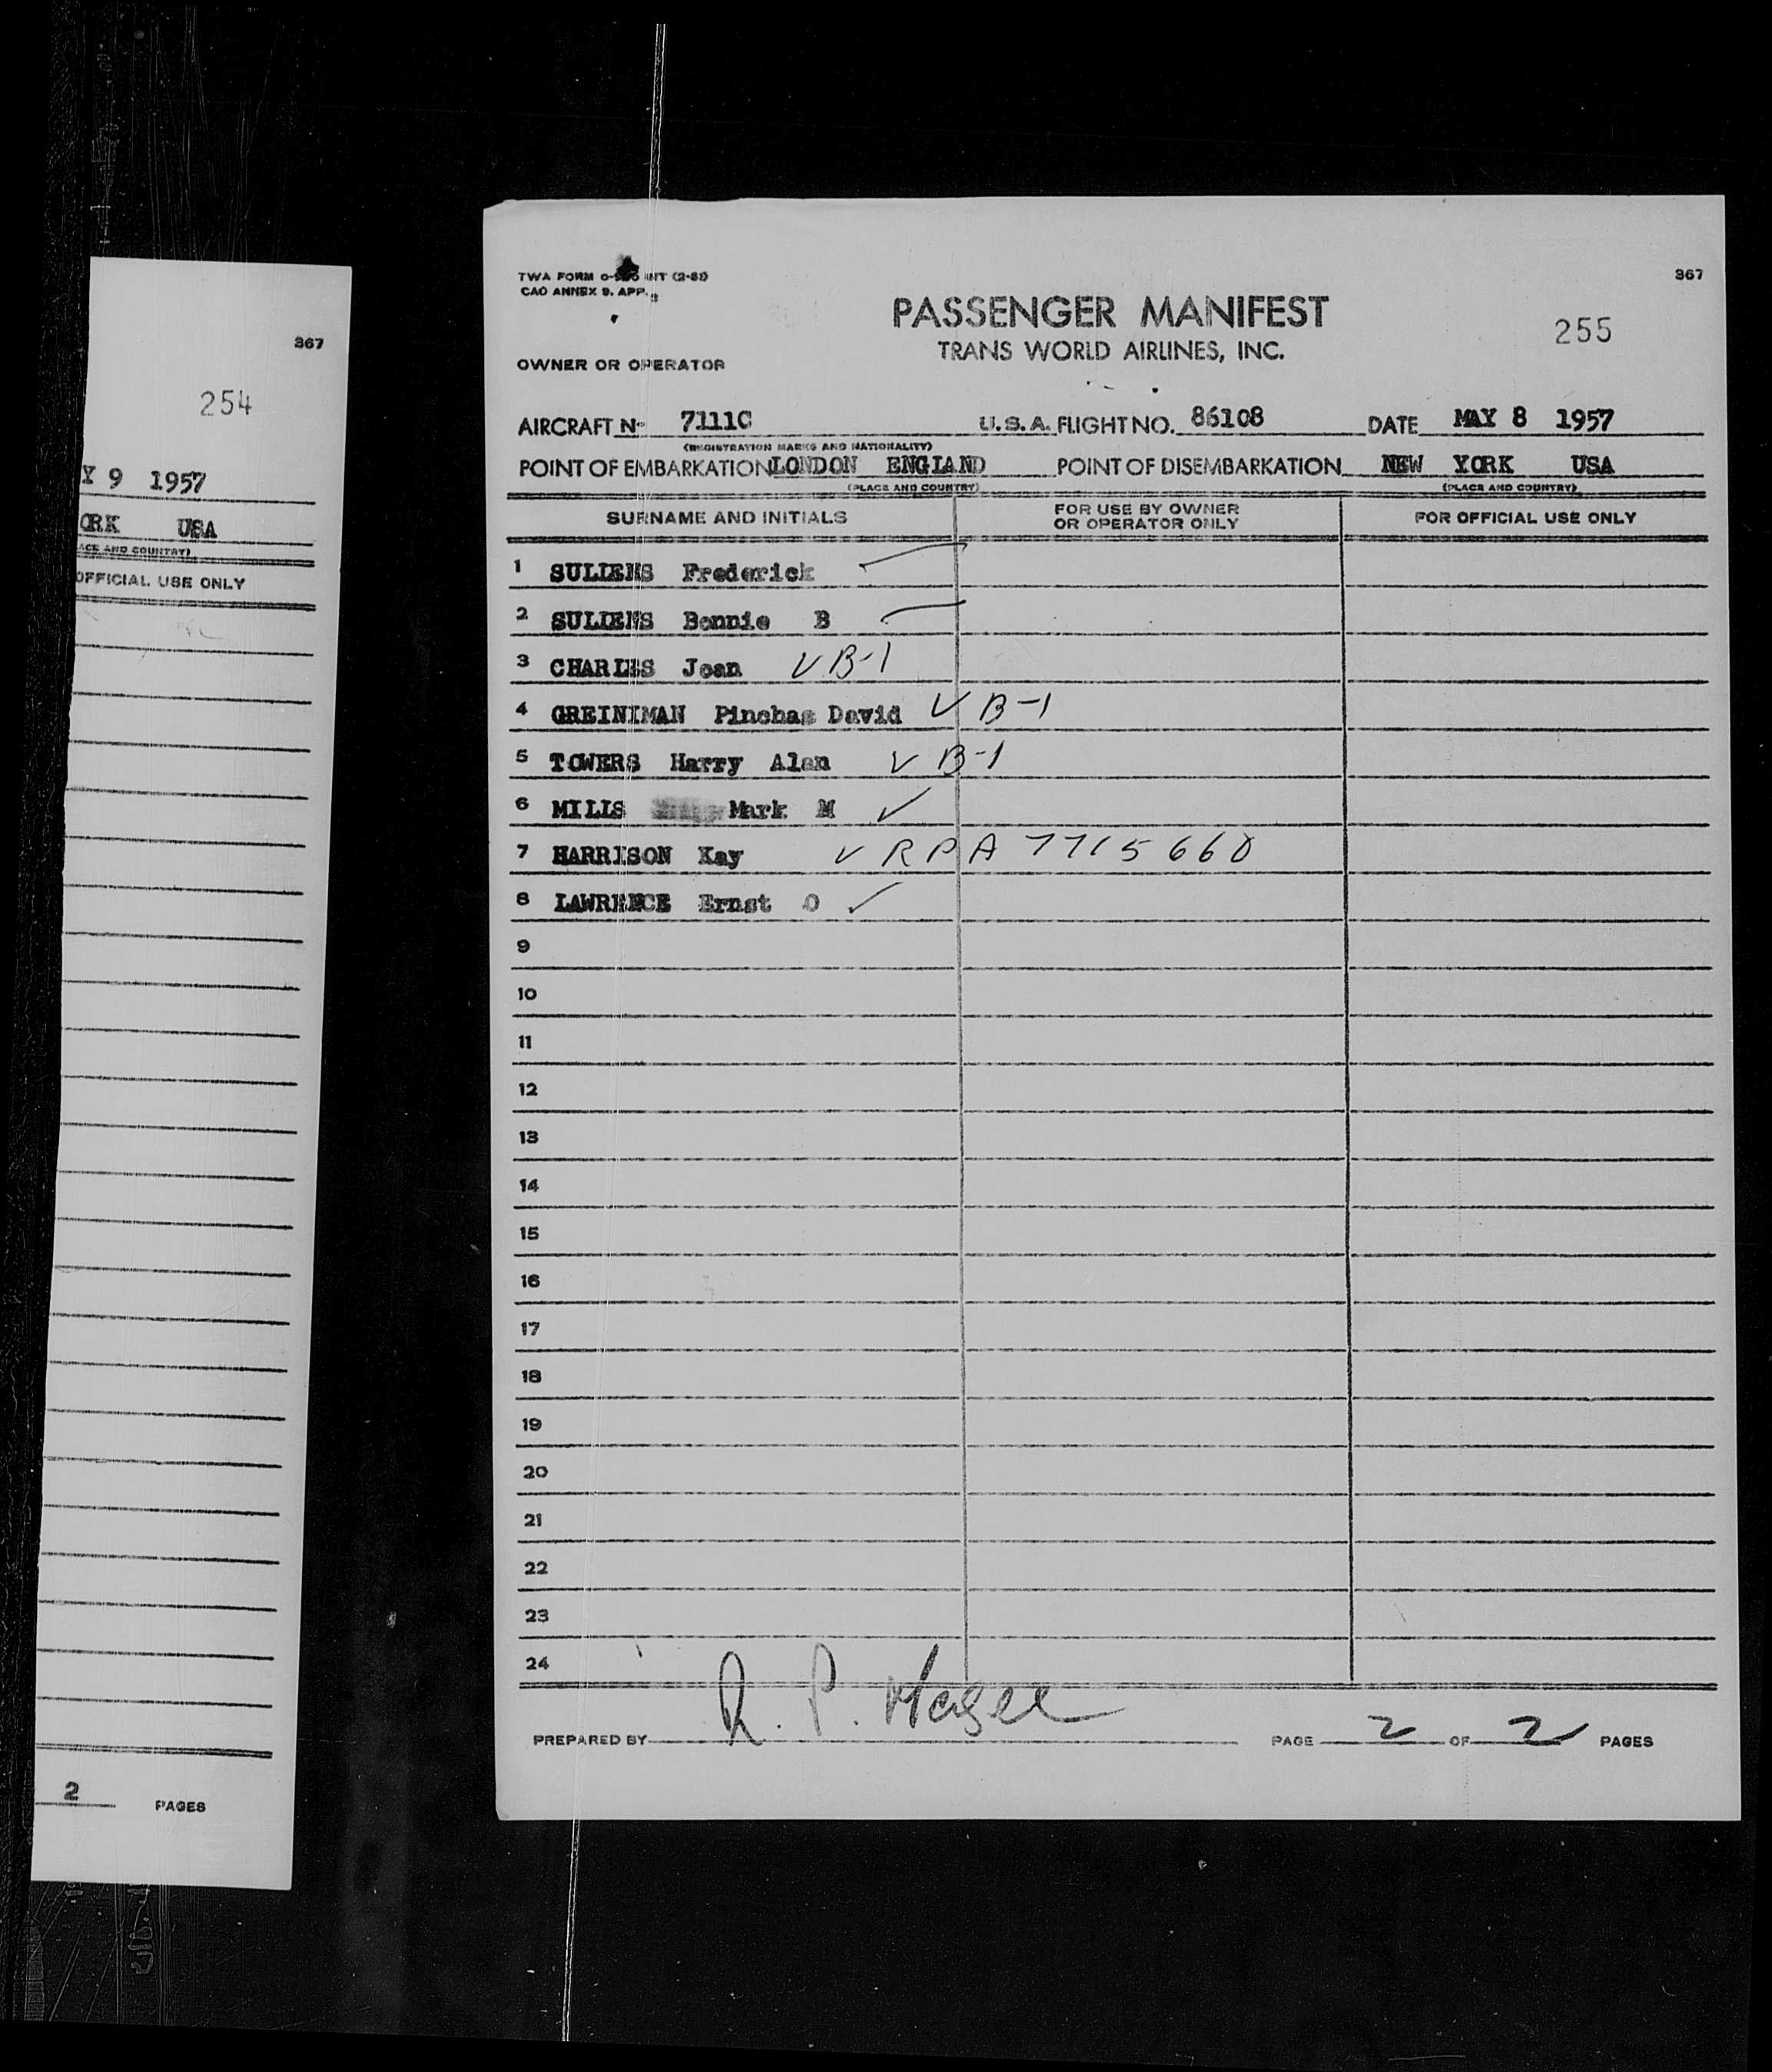 367
254
Y 9 1957
ORK USA
ACE AND COUNTRY)
OFFICIAL USE ONLY
2 PAGES
TWA FORM INT
CAO ANNEX 9. APP.
367
PASSENGER MANIFEST
255
TRANS WORLD AIRLINES, INC.
OWNER OR OPERATOR
AIRCRAFT N- 7111C U.S.A. FLIGHT NO. 86108 DATE MAY 8 1957
(REGISTRATION MARKS AND NATIONALITY)
POINT OF EMBARKATION LONDON ENGLAND POINT OF DISEMBARKATION NEW YORK USA
(PLACE AND COUNTRY) (PLACE AND COUNTRY)
SURNAME AND INITIALS FOR USE BY OWNER OR OPERATOR ONLY FOR OFFICIAL USE ONLY
1 SULIENS Frederick
2 SULIENS Bonnie B
3 CHARLES Joan ✓ B-1
4 GREINIMAN Pinchas David ✓ B-1
5 TOWERS Harry Alan ✓ B-1
6 MILLS Mark M ✓
7 HARRISON Kay ✓ RPA 7715660
8 LAWRENCE Ernst O ✓
9
10
11
12
13
14
15
16
17
18
19
20
21
22
23
24
PREPARED BY R. P. Magee PAGE 2 OF 2 PAGES